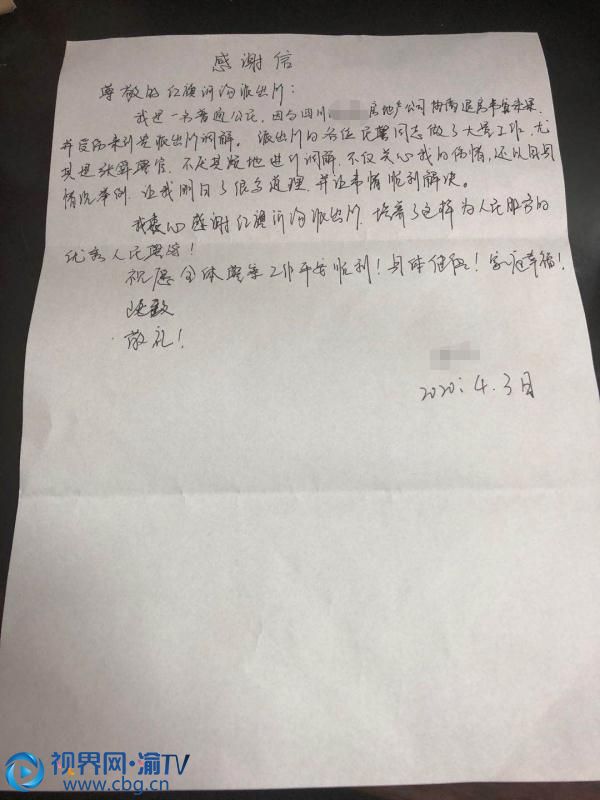 感谢信
尊敬的红旗河沟派出所:
我是一名普通公民,因与四川 房地产公司 退房
并受伤来到贵派出所调解。派出所的各位民警同志做了大量工作,尤
其是张 警官,不厌其烦地进行调解,不仅关心我的伤情,还以自身
情况举例,让我明白了很多道理,并让事情顺利解决。
我衷心感谢红旗河沟派出所,培养了这样为人民服务的
优秀人民警察!
祝愿全体警察工作平安顺利!身体健康!家庭幸福!
此致
敬礼!
2020.4.3日
视界网·渝TV
www.cbg.cn